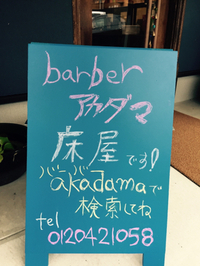 barber
アカダマ
床屋です!
"バーバー akadama"で
検索してね
tel
0120421058